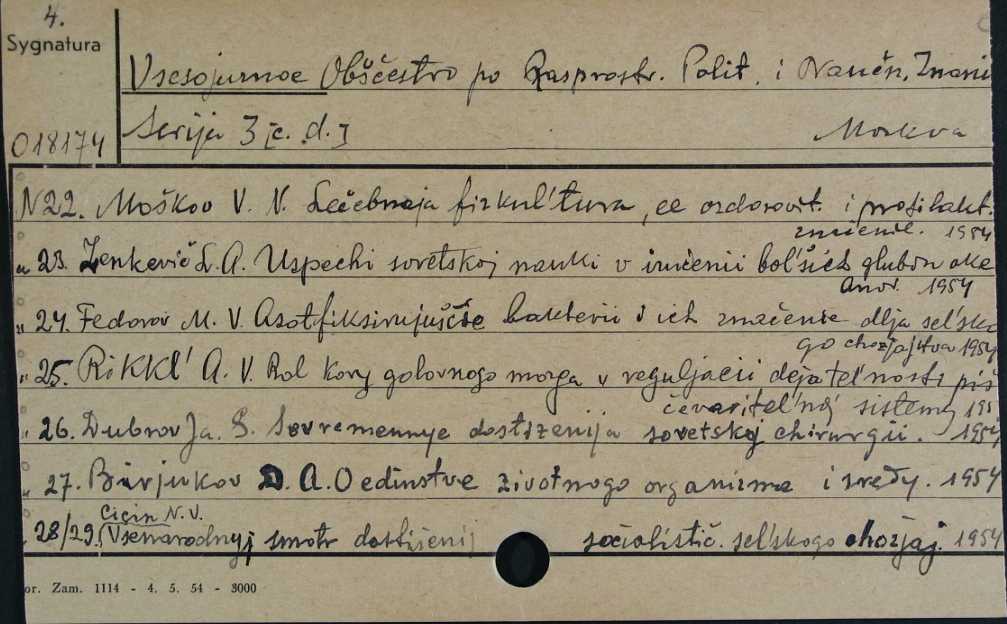 4.
Sygnatura
Vsesojuznoe Obščestvo po Rasprostr. Polit. i Naučn. Znani
O18174 Serija 3 [c. d.] Moskva
N22. Moškov V. N. Lečebnaja fizkul'tura, ee ozdorovit. i profilakt.
značenie. 1954
" 23. Zenkevič L. A. Uspechi sovetskoj nauki v izučenii bol'šich glubin oke
anov. 1954
" 24. Fedorov M. V. Azotfiksirujuščie bakterii i ich značenie dlja sel'sko
go chozjajstva 1954
" 25. Rikkl' A. V. Rol kory golovnogo mozga v reguljacii dejatel'nosti piš
čevaritel'noj sistemy 195
" 26. Dubrov Ja. G. Sovremennye dostiženija sovetskoj chirurgii. 1954
" 27. Birjukov D. A. O edinstve životnogo organizma i sredy. 1954
Cicin N. V.
" 28/29. Vsenarodnyj smotr dostiženij socialistič. sel'skogo chozjaj. 1954
or. Zam. 1114 - 4. 5. 54 - 3000